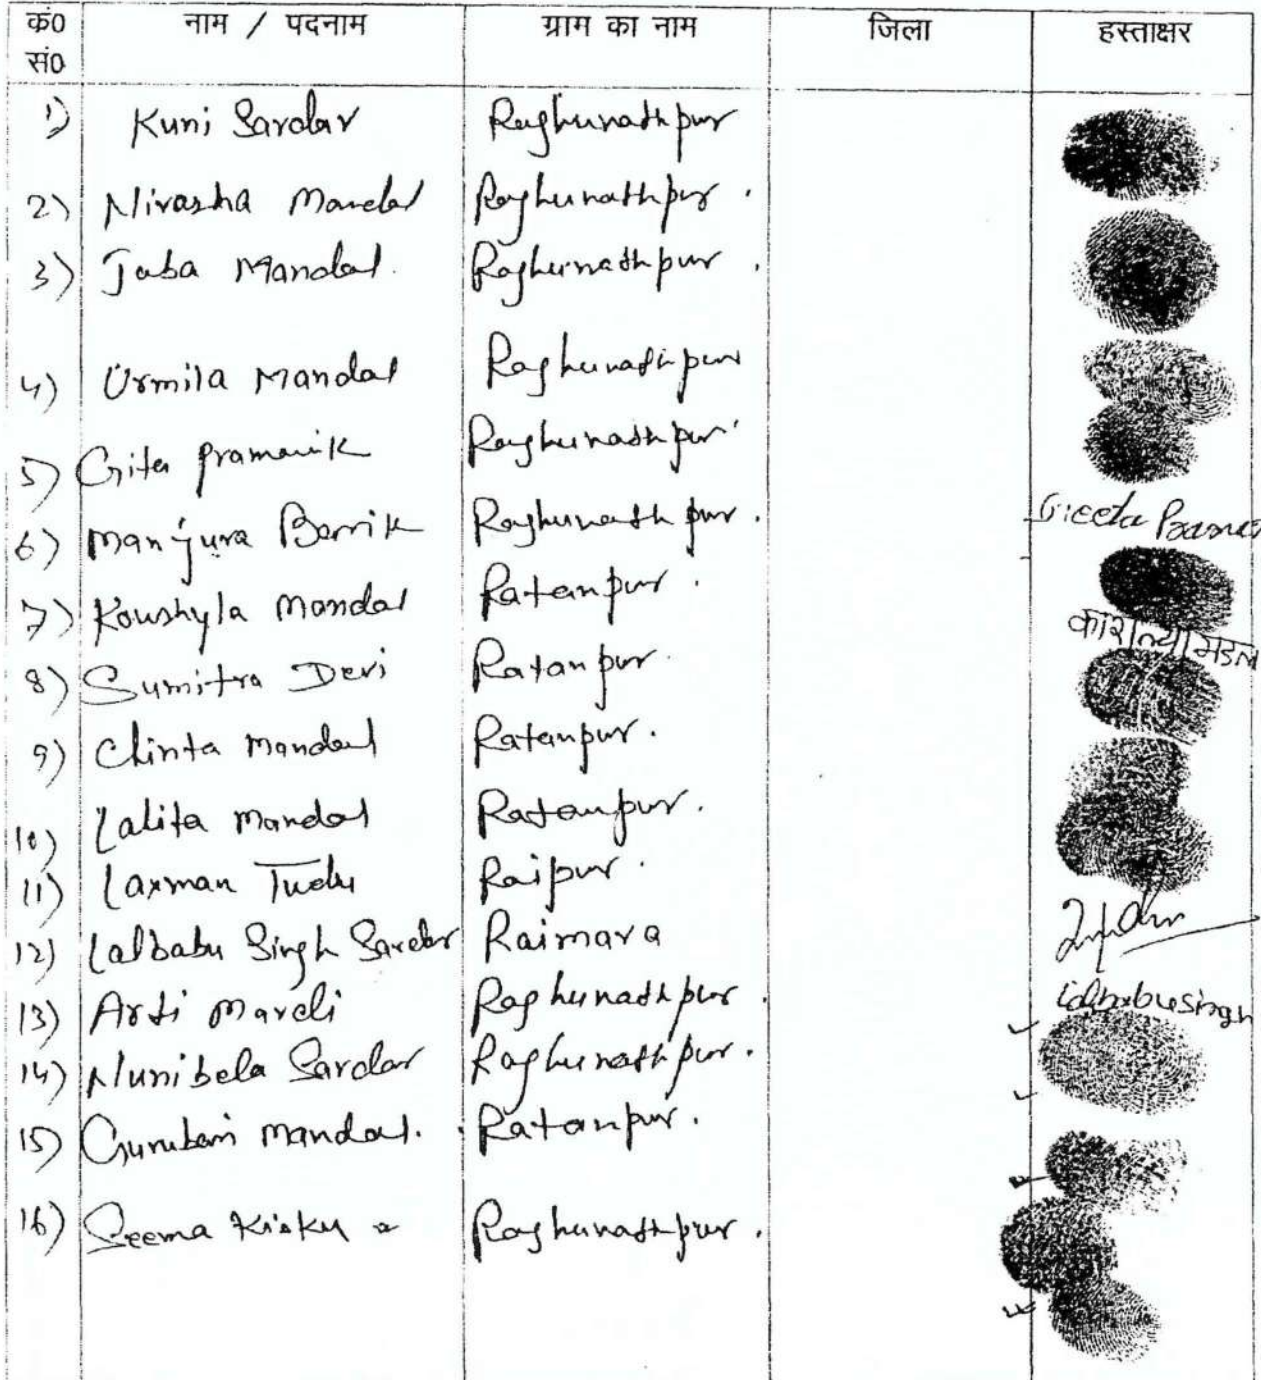 कं० सं० नाम / पदनाम ग्राम का नाम जिला हस्ताक्षर
1) Kuni Sardar Raghunathpur
2) Nirasha Mandal Raghunathpur.
3) Jaba Mandal. Raghunathpur.
4) Urmila Mandal Raghunathpur
5) Gita Pramanik Raghunathpur
6) Manjura Barik Raghunathpur. Geeta
7) Koushyla Mandal Ratanpur.
8) Sumitra Devi Ratanpur.
9) Chinta Mandal Ratanpur.
10) Lalita Mandal Ratanpur.
11) Laxman Tudu Raipur.
12) Lalbabu Singh Sardar Raimara
13) Arti Mardi Raghunathpur.
14) Nunibela Sardar Raghunathpur.
15) Gurubari Mandal. Ratanpur.
16) Seema Kisku Raghunathpur.